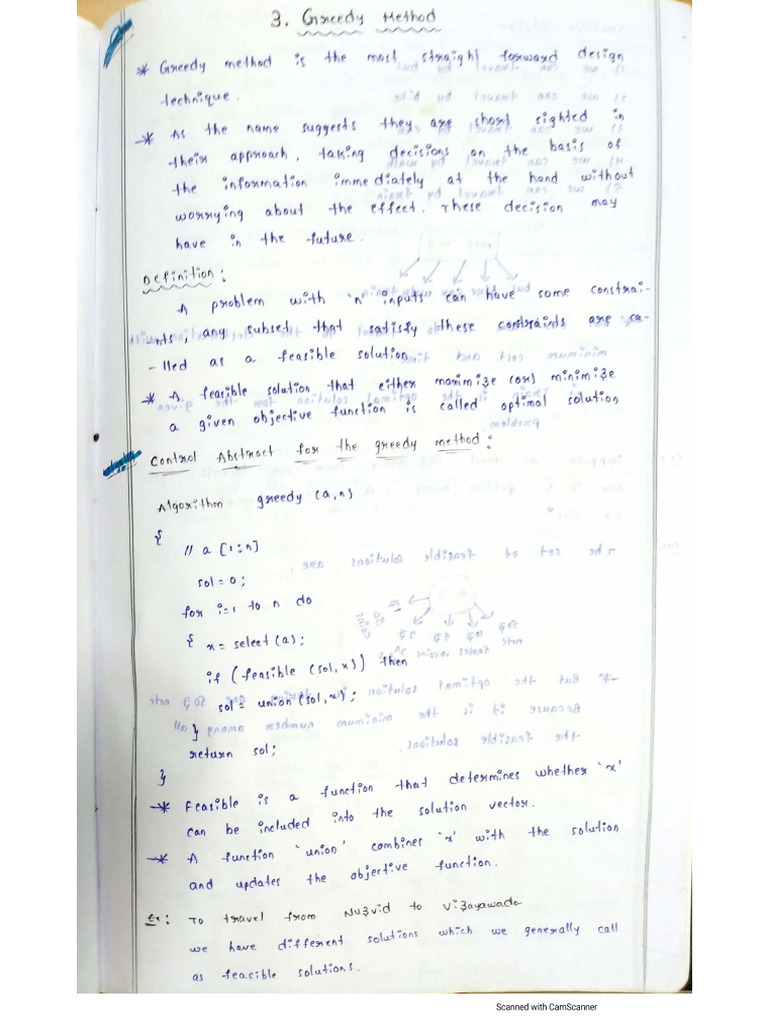 3. Greedy Method
* Greedy method is the most straight forward design
technique.
* As the name suggests they are short sighted in
their approach, taking decisions on the basis of
the information immediately at the hand without
worrying about the effect. These decision may
have in the future.
Definition:
A problem with 'n' inputs can have some constrai-
nts, any subset that satisfy these constraints are ca-
-lled as a feasible solution.
* A feasible solution that either maximize (or) minimize
a given objective function is called optimal solution
Control Abstract for the greedy method:
Algorithm greedy (a,n)
{
// a [1:n]
sol = 0;
for i=1 to n do
{ x = select (a);
if (feasible (sol, x)) then
sol = union (sol, x);
}
return sol;
}
* Feasible is a function that determines whether 'x'
can be included into the solution vector.
* A function 'union' combines 'x' with the solution
and updates the objective function.
Ex: To travel from Nuzvid to Vizayawada
we have different solutions which we generally call
as feasible solutions.
Scanned with CamScanner